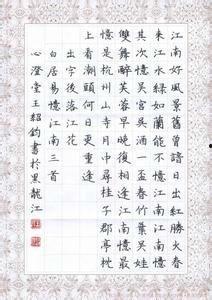 江南好風景舊曾諳日出紅勝火春
来江水綠如藍能不憶江南江南憶
其次憶吳宮吳酒一盃春竹葉吳娃
雙舞醉芙蓉早晚復相逢江南憶最
憶是杭州山寺月中尋桂子郡亭枕
上看潮頭何日更重遊
出字後落江花
白居易憶江南三首
心澄堂王紹鈞書於黑龍江